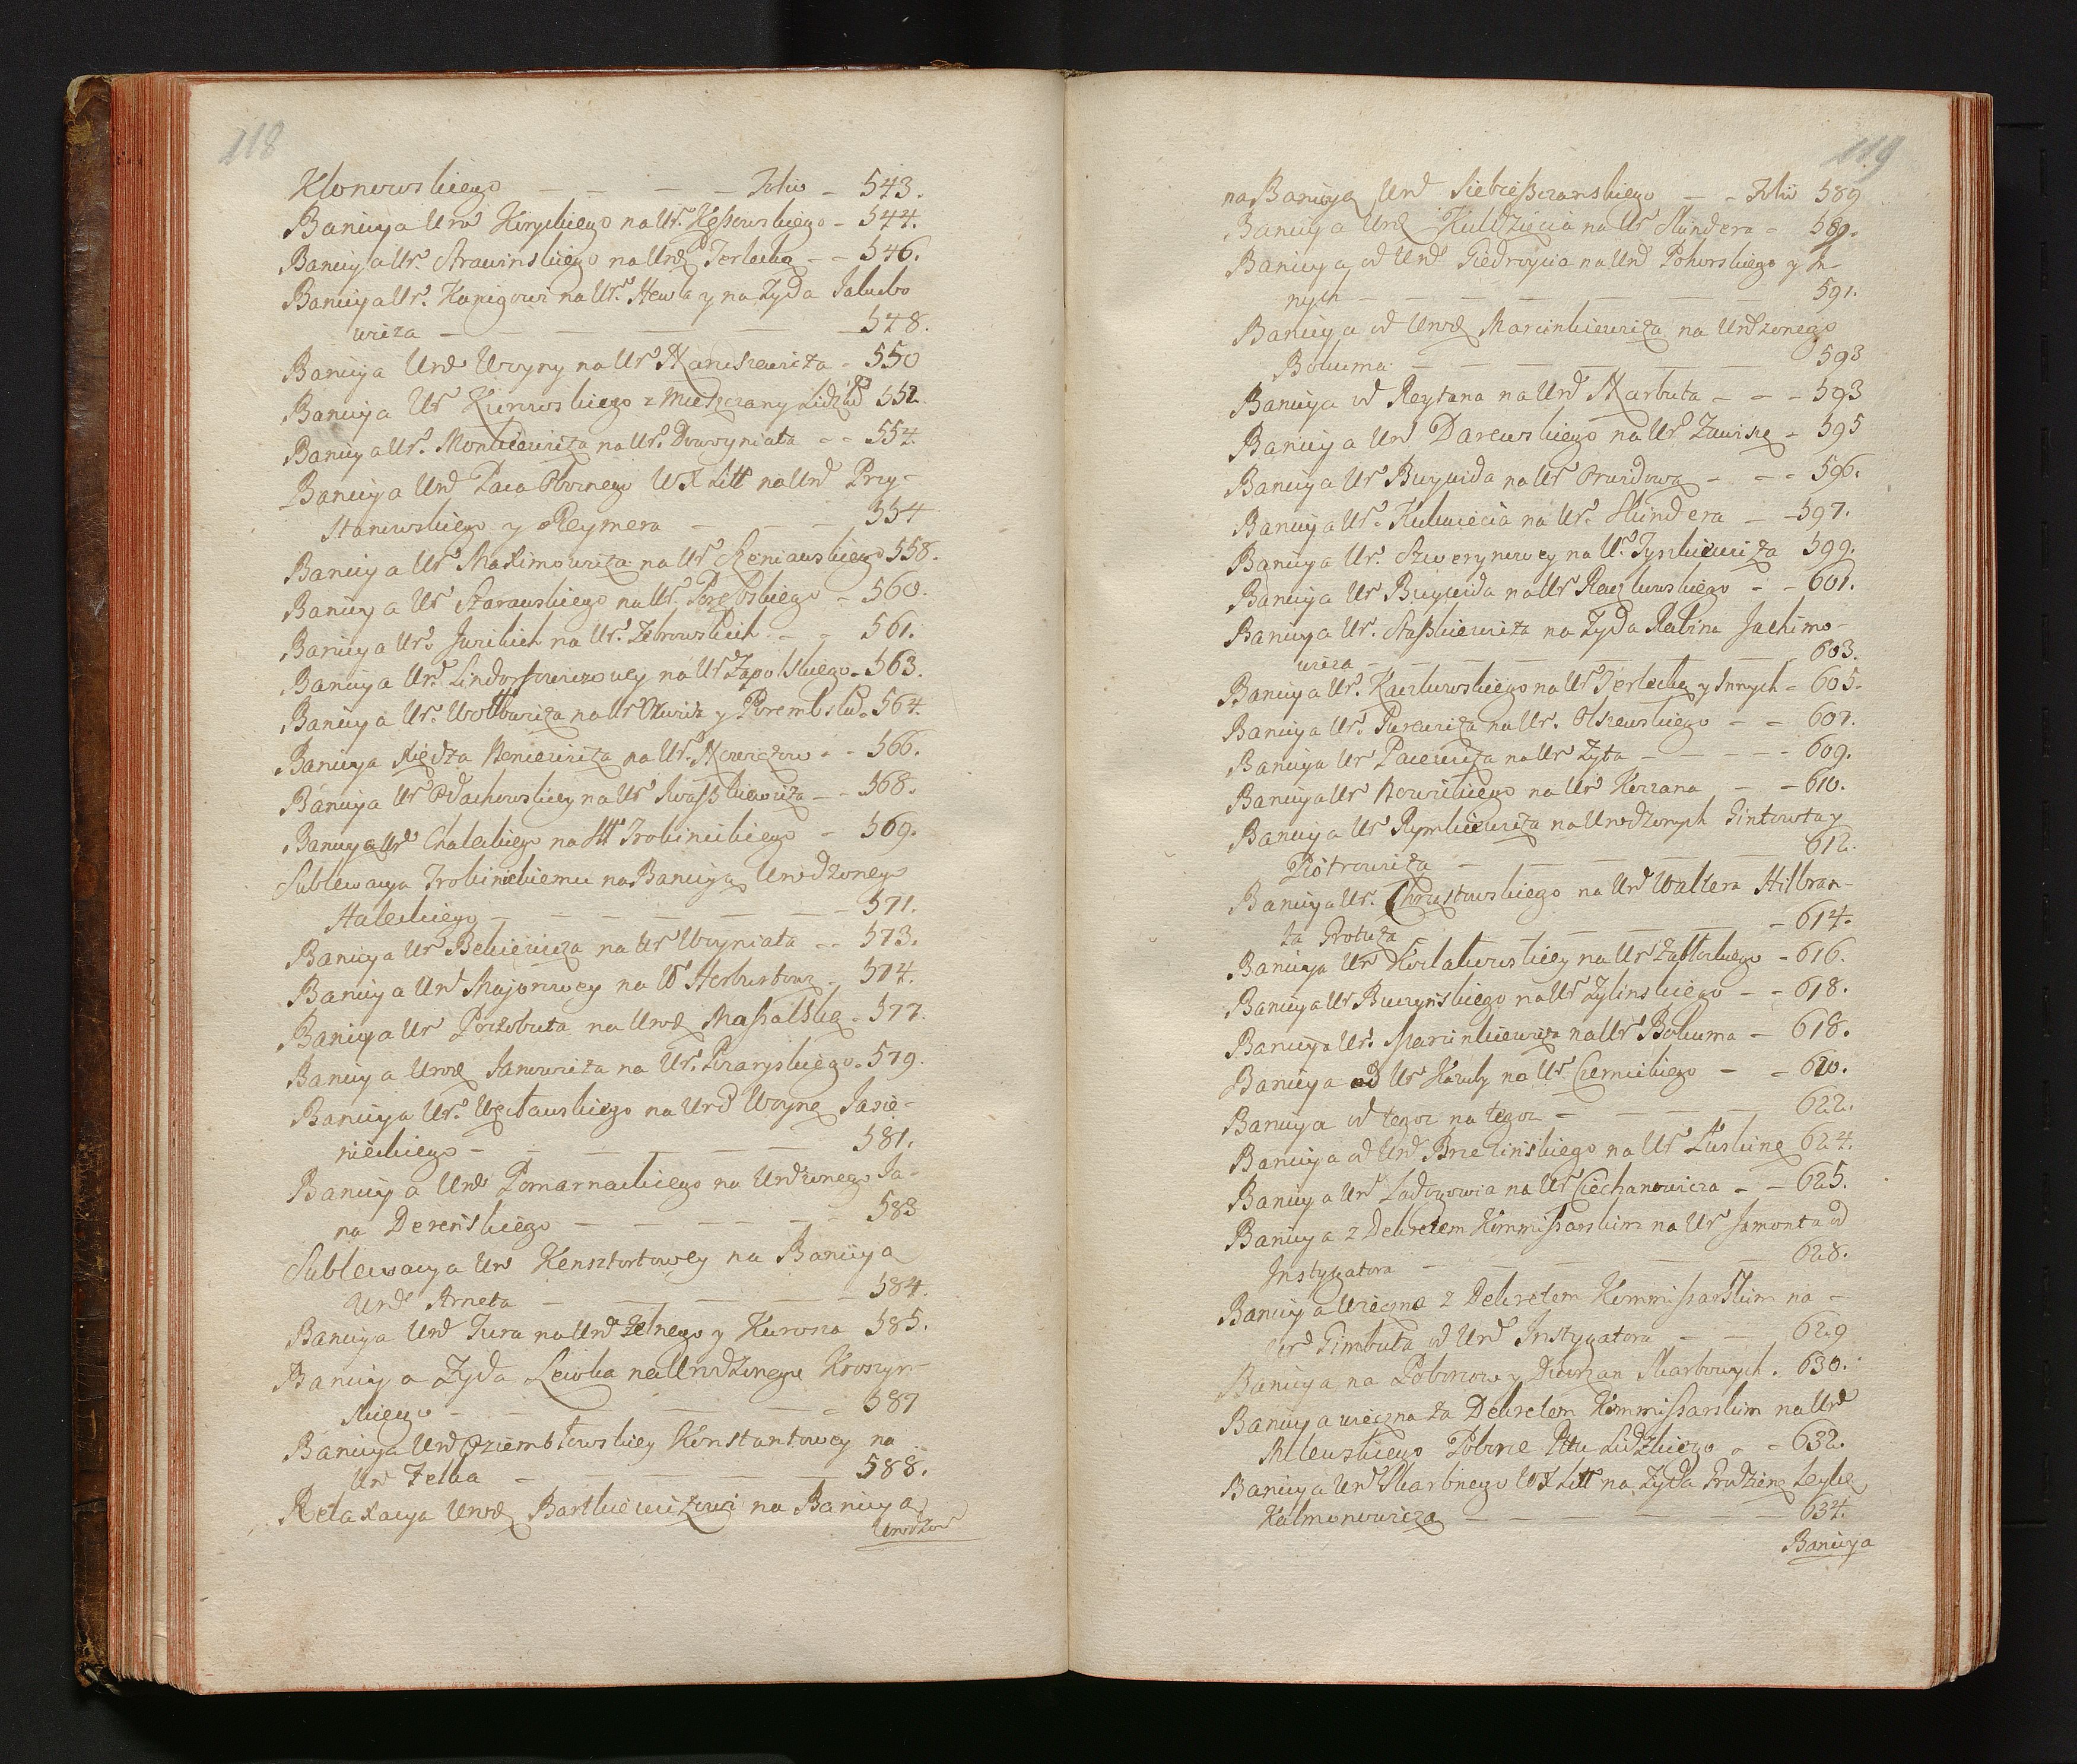 118
Klonowskiego — — — — Folio — 543.
Banicya Urod Kiryckiego na Ur. Kęssowskiego — 544.
Banicya Ur. Strawinskiego na Urod Terlecką — — 546.
Banicya Ur. Kanigowi na Ur. Hewla y na Żyda Jakubo
wicza — — — — — 548.
Banicya Urod Woyny na Ur Naruszewicza — 550
Banicya Ur Kunowskiego z Mieszczany Lidzki 552.
Banicya Ur. Monkiewicza na Ur. Dowoyniata — — 554.
Banicya Urod Paca Obornego WX Litt na Urod Przy-
stanowskiego y Reymera — — — 554
Banicya Ur Maximowicza na Ur Sieniawskiego 558.
Banicya Ur Starawskiego na Ur. Porębskiego — 560.
Banicya Ur. Jurskich na Ur. Żebrowskich — — 561.
Banicya Ur. Lindorfowiczowey na Ur Zapolskiego — 563.
Banicya Ur. Wołłowicza na Ur y Porembsk — 564.
Banicya Xiędza Heniewicza na Ur. Nowiczow — — 566.
Banicya Ur Odachowskiey na Ur Iwaszkiewicza — — 568.
Banicya Ur Chaleckiego na Htt Trobinickiego — 569.
Sublewacya Trobinickiemu na Banicyą Urodzonego
Haleckiego — — — — — — 571.
Banicya Ur Bekiewicza na Ur Woyniata — — 573.
Banicya Ur Majorowey na U Herburtową — 574.
Banicya Ur Poczobuta na Urod Massalską — 577.
Banicya Urod Janowicza na Ur. Pisarzskiego — 579.
Banicya Ur. Węcławskiego na Urod Woynę Jasie-
nieckiego — — — — — — 581.
Banicya Urod Pomarnackiego na Urodzonego Ja-
na Derenskiego — — — — — — 583
Sublewacya Ur Kensztortowey na Banicyą
Urod Arneta — — — — — 584.
Banicya Urod Jura na Urod Żelnego y Kurosza 585.
Banicya Żyda Lewka na Urodzonego Kroszyn-
skiego — — — — — 587
Banicya Urod Dziembłowskiey Konstantowey na
Ur Zelba — — — — — 588.
Relaxacya Urod Bartkiewiczowi na Banicyą
Urodzon

119
na Banicyą Urod Siebieszczanskiego — — Folio 589
Banicya Urod Kuldzicia na Ur Mündera — 589.
Banicya od Urod Giedroycia na Urod Pohorskiego y In-
nych — — — — — — 591.
Banicya od Urod Marcinkiewicza na Urodzonego
Bokuma — — — — — — 593
Banicya od Reytana na Urod Narbuta — — — 593
Banicya Ur Darewskiego na Ur Zawiszę — 595
Banicya Ur Buywida na Ur Druidową — — — 596.
Banicya Ur. Kulwiecia na Ur. Mündera — — 597.
Banicya Ur. Szwerynowey na Ur. Tyszkiewicza 599.
Banicya Ur Buywida na Ur Raczkowskiego — — 601.
Banicya Ur. Staszkiewicza na Żyda Rabina Jachimo-
wicza — — — — — — 603.
Banicya Ur. Kaczkowskiego na Ur Terlecką y Innych — 605.
Banicya Ur. Purewicza na Ur. Olszewskiego — — 607.
Banicya Ur Pacewicza na Ur Żyta — — — — 609.
Banicya Ur Nowickiego na Ur Korzana — — 610.
Banicya Ur Rymkiewicza na Urodzonych Gintowta y
Piotrowicza — — — — — 612.
Banicya Ur. Chrzstowskiego na Urod Waltera Hilbran-
ta Grotuza — — — — — 614.
Banicya Ur Korlatowskiey na Ur Zabłockiego — 616.
Banicya Ur Buczynskiego na Ur Żylinskiego — — 618.
Banicya Ur. Marcinkiewicza na Ur Bokuma — 618.
Banicya od Ur Karuly na Ur. Czernickiego — — 620.
Banicya od tegoż na tegoż — — — — 622.
Banicya od Urod Brzezinskiego na Ur Łuskinę 624.
Banicya Ur Zadzgowia na Ur Ciechanowicza — — 625.
Banicya z Dekretem Kommissarskim na Ur Jamonta od
Instygatora — — — — — 628.
Banicya Wieczna z Dekretem Kommissarskim na —
Ur Gimbuta od Urod Instygatora — — 629
Banicya na Poborcow y Dworzan Skarbowych — 630.
Banicya wieczna za Dekretem Kommissarskim na Urod
Mlewskiego Poborcę Pttu Lidzkiego — — 632.
Banicya Urod Skarbnego WX Litt na Żyda Grodzien Leybę
Kalmonowicza — — — — — 634.
Banicya